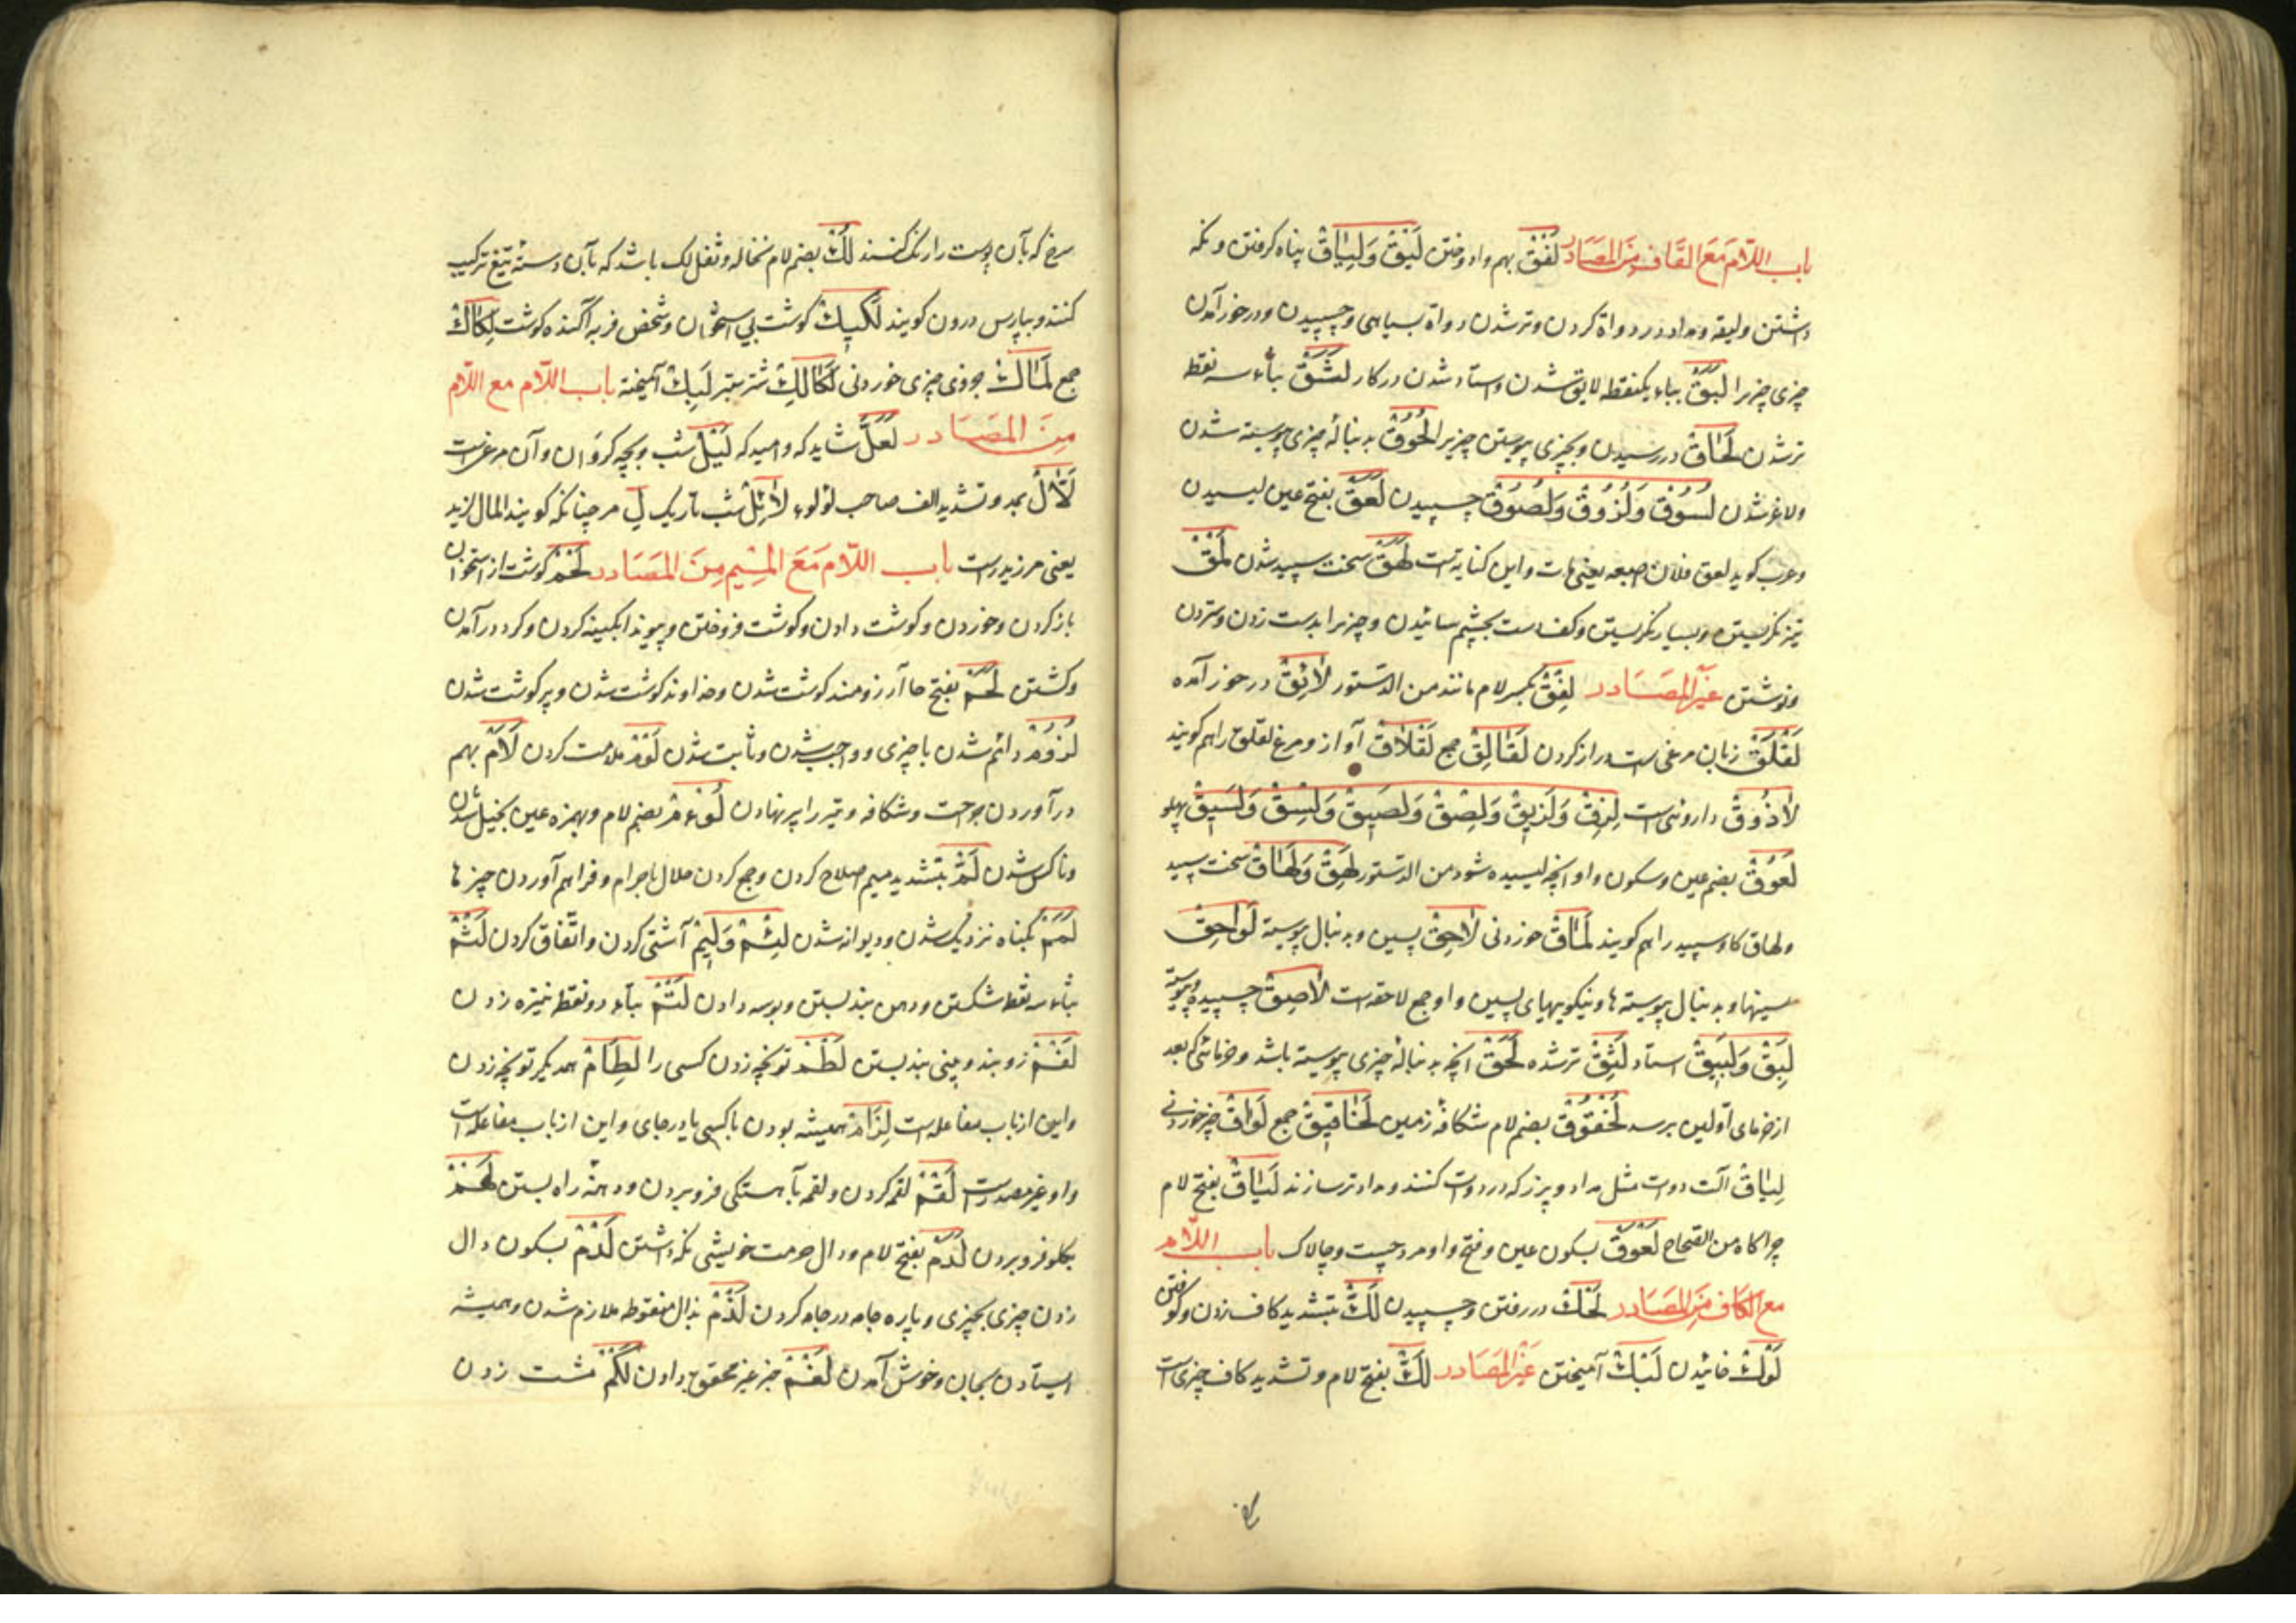 باب اللّام مَعَ القَاف مِنَ المَصَادر لَفْقٌ بهم وادوختن لَيْقٌ وَلِيَاقٌ پناه کرفتن ونکه
داشتن ولیقه ومداد در دواة کردن وترشدن دواة بسیاهی وچسپیدن ودرخورآمدن
چزی چزیرا لَبَقٌ بباء یکنقطه لایق شدن واستاد شدن در کار لَثَقٌ بثاء سه نقطه
ترشدن لَحَاقٌ در رسیدن وبچیزی پیوستن چزیرا لُحُوقٌ بدنبالهٔ چیزی پیوسته شدن
ولاغر شدن لُسُوقٌ وَلُزُوقٌ وَلُصُوقٌ چسپیدن لَعَقٌ بفتح عین لیسیدن
وعرب کوید لعق فلان اصبعه یعنی مات واین کنایتست لَهَقٌ سخت سپید شدن لَمْقٌ
تیز نکریستن وبسیار نکریستن وکف دست بچشم سائیدن وچیزیرا بدست زدن وستردن
ونوشتن غَیْرُ المَصَادر لِفْقٌ بکسر لام مانند من الدستور لائِقٌ در خور آمده
لَقْلَقٌ زبان مرغی است دراز کردن لَقَالِقٌ جمع لَقْلَاقٌ آواز ومرغ لقلق راهم کویند
لَاذُوقٌ داروئی است لِزْقٌ وَلَزِیقٌ وَلِصْقٌ وَلَصِیقٌ وَلِسْقٌ وَلَسِیقٌ پهلو
لَعُوقٌ بضم عین وسکون واو آنچه لیسیده شود من الدستور لَهِقٌ وَلَهَاقٌ سخت سپید
ولهاق کاو سپید راهم کویند لَمَاقٌ خوردنی لَاحِقٌ پسین وبدنبال پیوسته لَوَاحِقٌ
پسینها وبدنبال پیوسته ها ونیکوییهای پسین واو جمع لاحقه است لَاصِقٌ چسپیده وپیوسته
لَبِقٌ وَلَبِیقٌ استاد لَثِقٌ ترشده لَحَقٌ آنچه بدنبالهٔ چیزی پیوسته باشد وخرمائی که بعد
از خرمای اوّلین برسد لُخْقُوقٌ بضم لام شکافهٔ زمین لَخَاقِیقٌ جمع لَوَاقٌ چیز خوردنی
لِیَاقٌ آلت دوات مثل مداد وپرز که در دوات کنند ومداد تر سازند لَیَاقٌ بفتح لام
چراکاه من الصحاح لَعْوَقٌ بسکون عین وفتح واو مرد چست وچالاک باب اللّام
مع الکَاف مِنَ المَصَادر لَحْکٌ در رفتن وچسپیدن لَکٌّ بتشدید کاف زدن وکوفتن
لَوْکٌ خائیدن لَبْکٌ آمیختن غَیْرُ المَصَادر لَکٌّ بفتح لام وتشدید کاف چیزی است
سرخ که بآن پوست را رنک کنند لُکٌّ بضم لام نخاله وثفل لک باشد که بآن دستهٔ تیغ ترکیب
کنند وبپارس درون کویند لَکِیکٌ کوشت بی استخوان وشخص فربه آکنده کوشت لِکَاکٌ
جمع لَمَاکٌ جوزی چیزی خوردنی لُکَالِکٌ شتر ستبر لَبِیکٌ آمیخته باب اللّام مع اللّام
مِنَ المَصَادر لَعَلَّ شاید که وامید که لَیْلٌ شب وبچه کروان وآن مرغی است
لَأَّالٌ بمد وتشدید الف صاحب لؤلوء لَائِلٌ شب تاریک لِ مر چنانکه کویند المال لزید
یعنی مر زید راست باب اللّام مَعَ المِیْم مِنَ المَصَادر لَحْمٌ کوشت از استخوان
باز کردن وخوردن وکوشت دادن وکوشت فروختن وپیوند ابکینه کردن وکرد درآمدن
وکشتن لَحَمٌ بفتح حا آرزومند کوشت شدن وخداوند کوشت شدن وپر کوشت شدن
لُزُومٌ دائم شدن با چیزی وواجب شدن وثابت شدن لَوْمٌ ملامت کردن لَأْمٌ بهم
درآوردن جراحت وشکافه وتیر را پر نهادن لُؤْمٌ بضم لام وبهمزه عین بخیل شدن
وناکس شدن لَمٌّ بتشدید میم اصلاح کردن وجمع کردن حلال باحرام وفراهم آوردن چیزها
لَمَمٌ بکناه نزدیک شدن ودیوانه شدن لِئْمٌ وَلِیمٌ آشتی کردن واتّفاق کردن لَثْمٌ
بثاء سه نقطه شکستن ودهن بند بستن وبوسه دادن لَتْمٌ بتاء دونقطه نیزه زدن
لَفْمٌ روبند وبینی بند بستن لَطْمٌ توپخه زدن کسی را لِطَامٌ همدیکر توپخه زدن
واین از باب مفاعله است لِزَامٌ همیشه بودن باکسی یا در جای واین از باب مفاعله است
واو غیر مصدر است لَقْمٌ لقمه کردن ولقمه بآهستکی فروبردن ودهنهٔ راه بستن لَهْمٌ
بکلو فروبردن لَدَمٌ بفتح لام ودال حرمت خویشی نکه داشتن لَدْمٌ بسکون دال
زدن چیزی بچیزی وپاره جامه در جامه کردن لَذَمٌ بذال منقوطه ملازم شدن وهمیشه
ایستادن بجایی وخوش آمدن لَغْمٌ خبر غیر محقق دادن لَکْمٌ مشت زدن